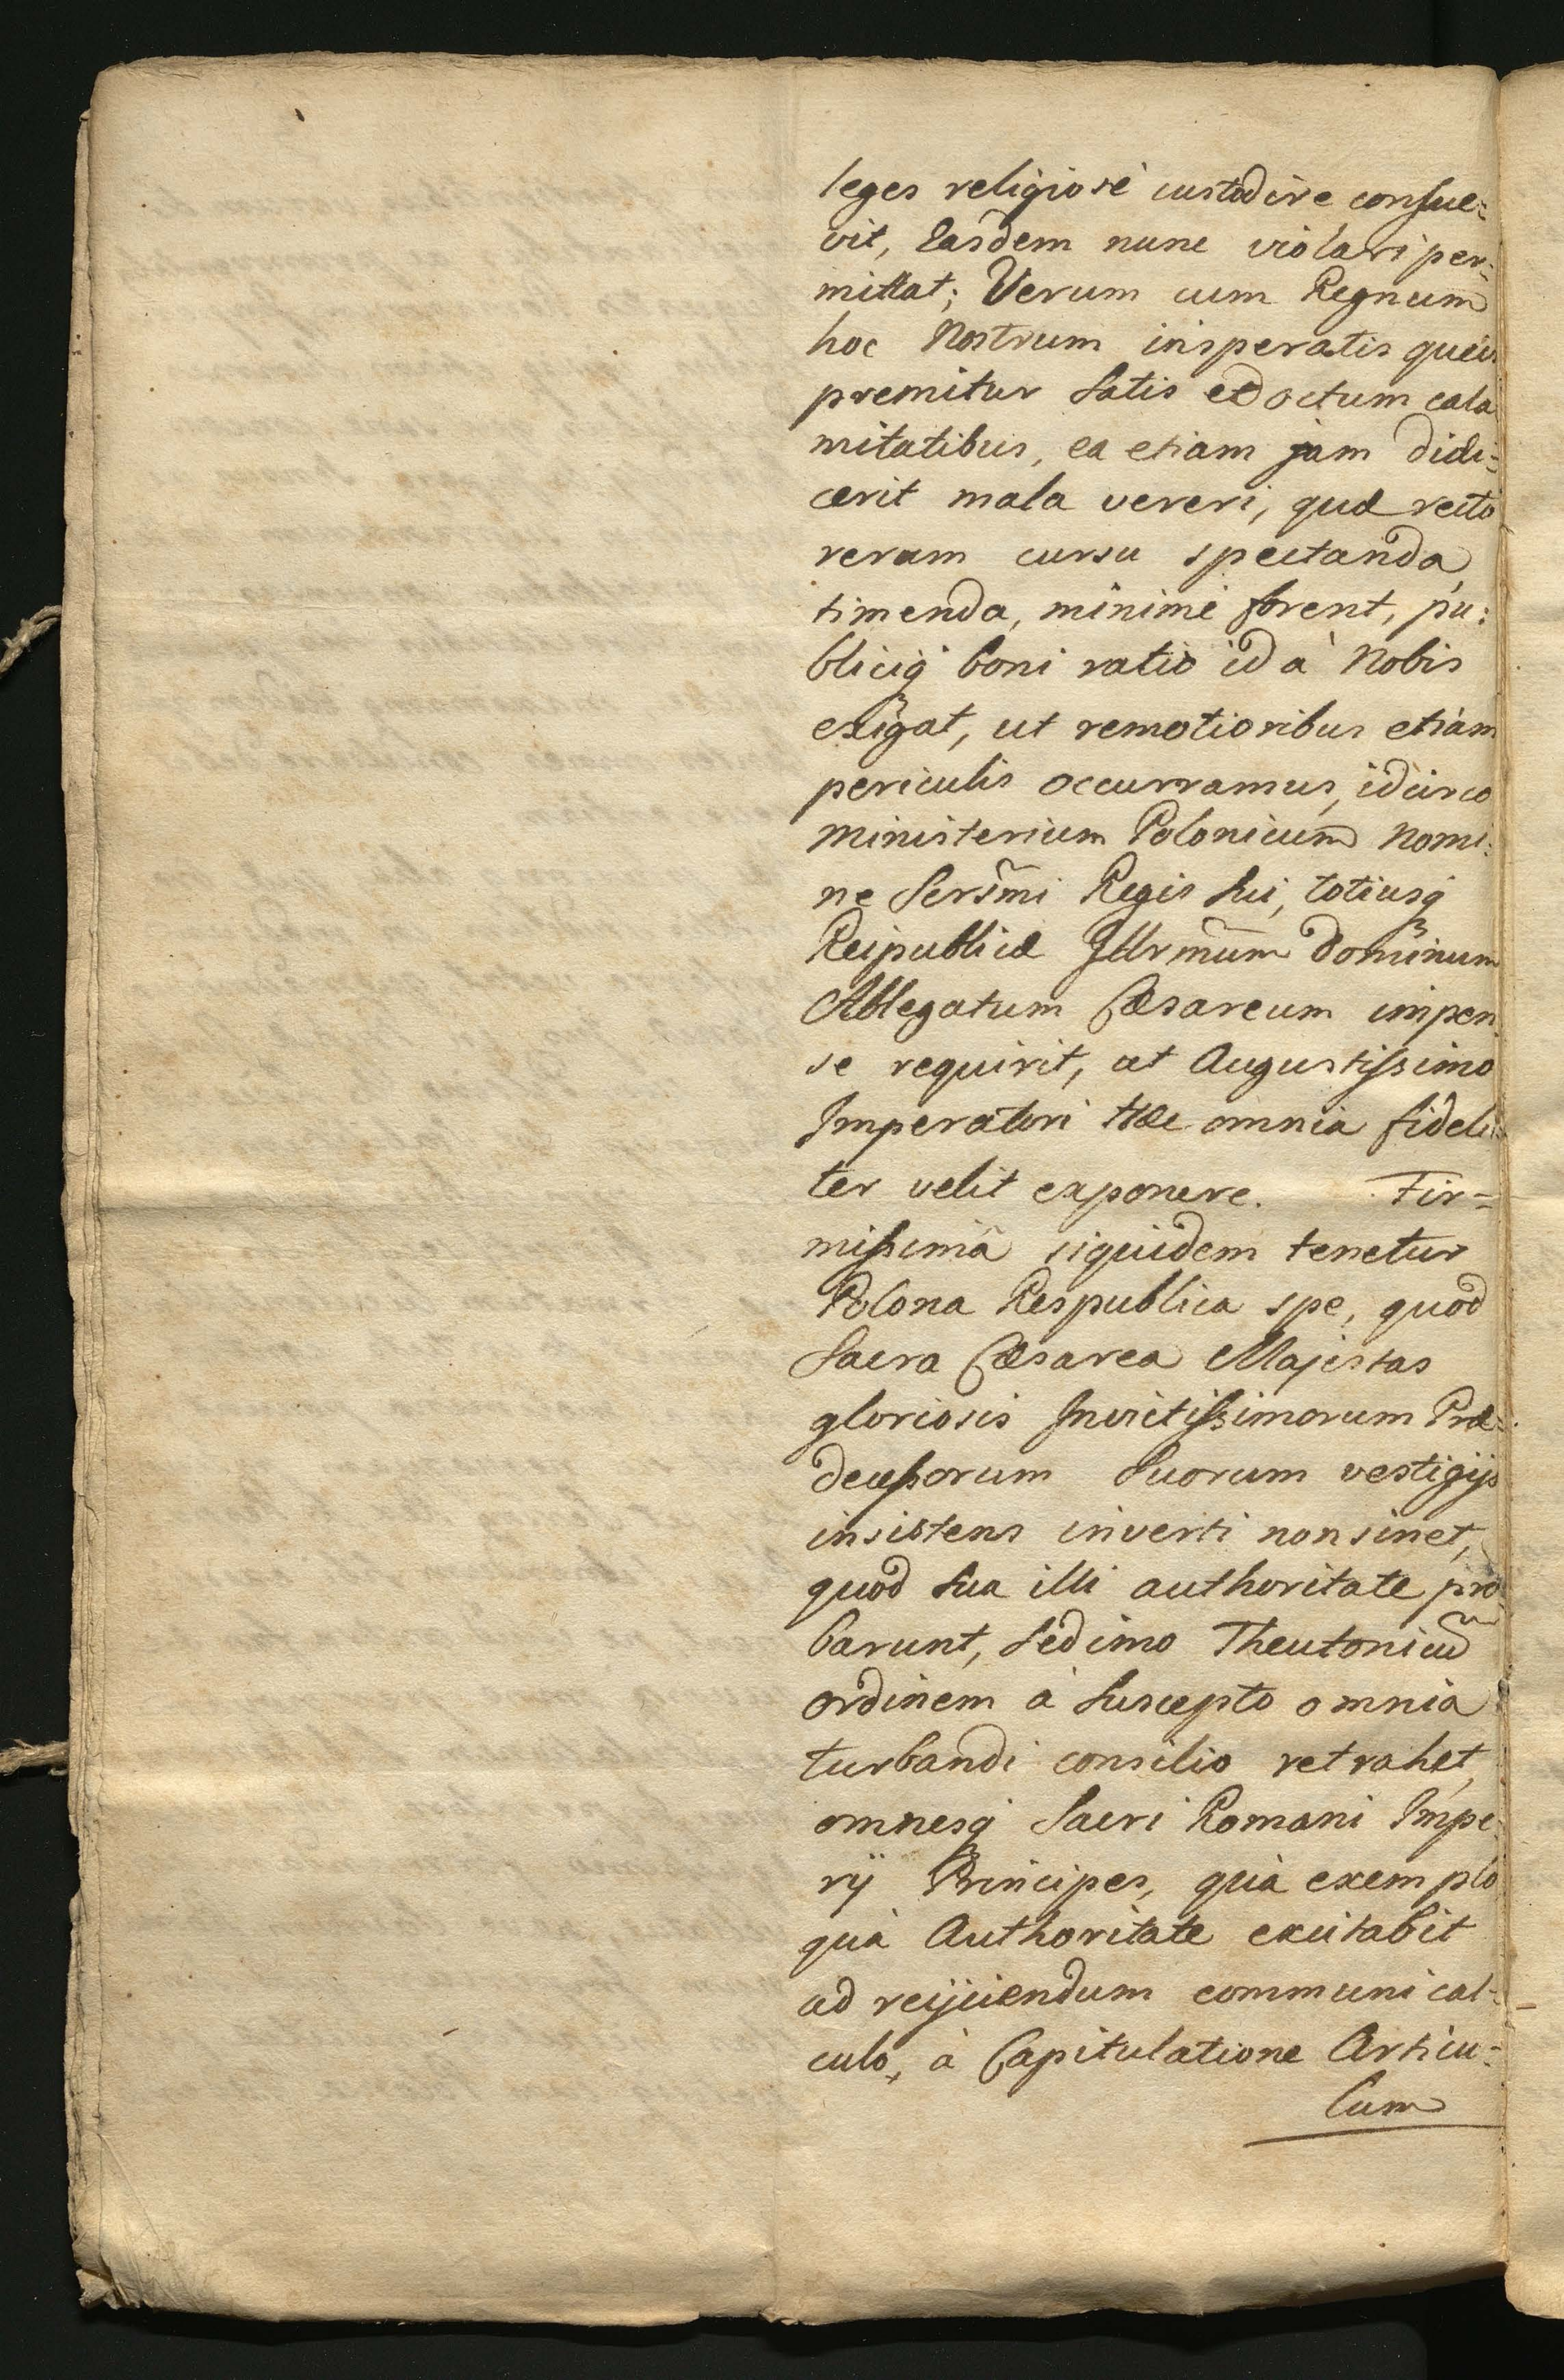 leges religiosè custodire consue-
vit, Easdem nunc violari per-
mittat; Verum cum Regnum
hoc Nostrum insperatis queis
premitur satis edoctum cala
mitatibus, ea etiam jam didi-
cerit mala vereri, quæ recto
rerum cursu spectanda,
timenda, minimè forent, pu:
bliciq; boni ratio id à Nobis
exigat, ut remotioribus etiam
periculis occurramus, idcirco
Ministerium Polonicum nomi:
ne Serm̃i Regis sui, totiusq;
Reipublicæ Illrm̃um dominum
Ablegatum Cæsareum impen
se requirit, ut Augustissimo
Imperatori hæc omnia fideli
ter velit exponere. Fir-
missimâ siquidem tenetur
Polona Respublica spe, quod
Sacra Cæsarea Majestas
gloriosis Invictissimorum Præ-
decessorum Suorum vestigijs
insistens inverti non sinet,
quod sua illi authoritate pro
barunt, sed imo Theutonicũ
ordinem à suscepto omnia
turbandi consilio retrahet,
omnesq; Sacri Romani Impe
rij Principes, quà exemplo
quà Authoritate excitabit
ad reijciendum communi cal-
culo, à Capitulatione Articu-
lum